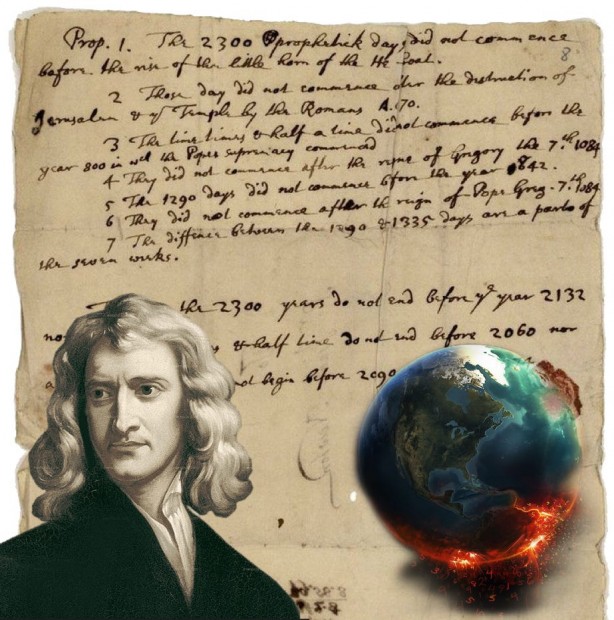 Prop. 1. The 2300 prophetick days did not commence
before the rise of the little horn of the He Goat.
8
2 Those day did not commence after the destruction of
Jerusalem & ye Temple by the Romans A. 70.
3 The time times & half a time did not commence before the
year 800 in wch the Popes supremacy commenced
4 They did not commence after the reigne of Gregory the 7th 1084
5 The 1290 days did not commence before the year 842.
6 They did not commence after the reign of Pope Greg. 7th 1084
7 The diffence between the 1290 & 1335 days are a parts of
the seven weeks.
the 2300 years do not end before ye year 2132
nor
& half time do not end before 2060 nor
begin before 2090